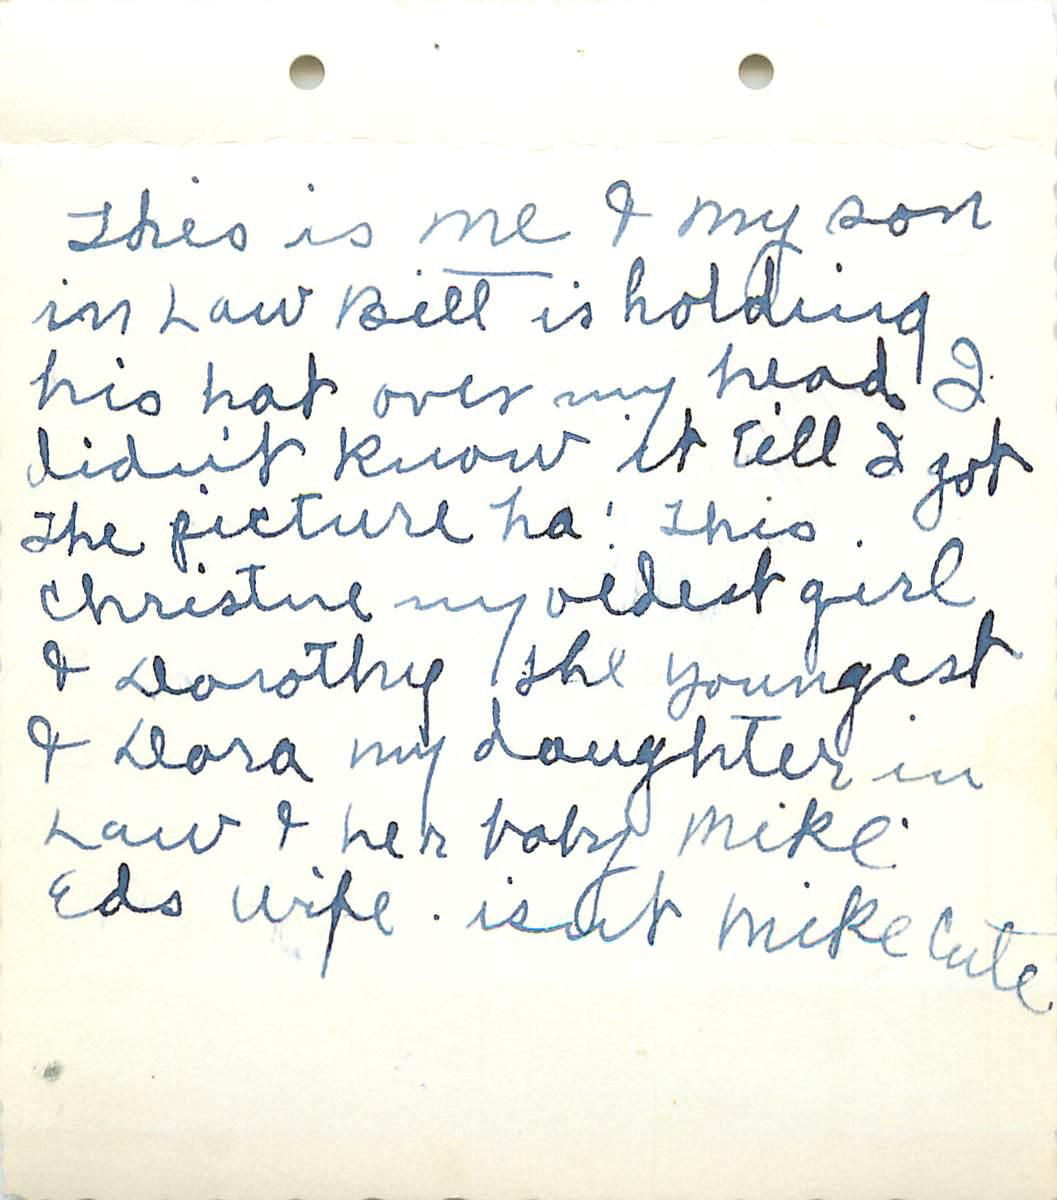 This is me & my son
in Law Bill is holding
his hat over my head I
didn't know it till I got
the picture ha! This
Christine my oldest girl
& Dorothy the youngest
& Dora my daughter in
Law & her baby Mike.
Eds wife. isn't Mike Cute